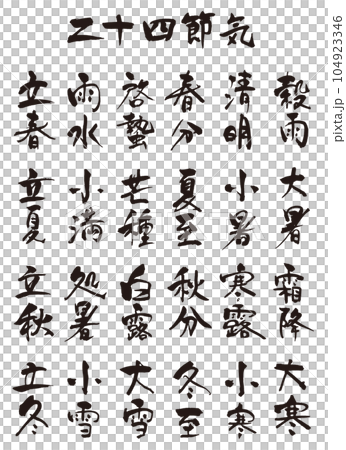 二十四節気
立春 雨水 啓蟄 春分 清明 穀雨
立夏 小満 芒種 夏至 小暑 大暑
立秋 処暑 白露 秋分 寒露 霜降
立冬 小雪 大雪 冬至 小寒 大寒
pixta.jp - 104923346